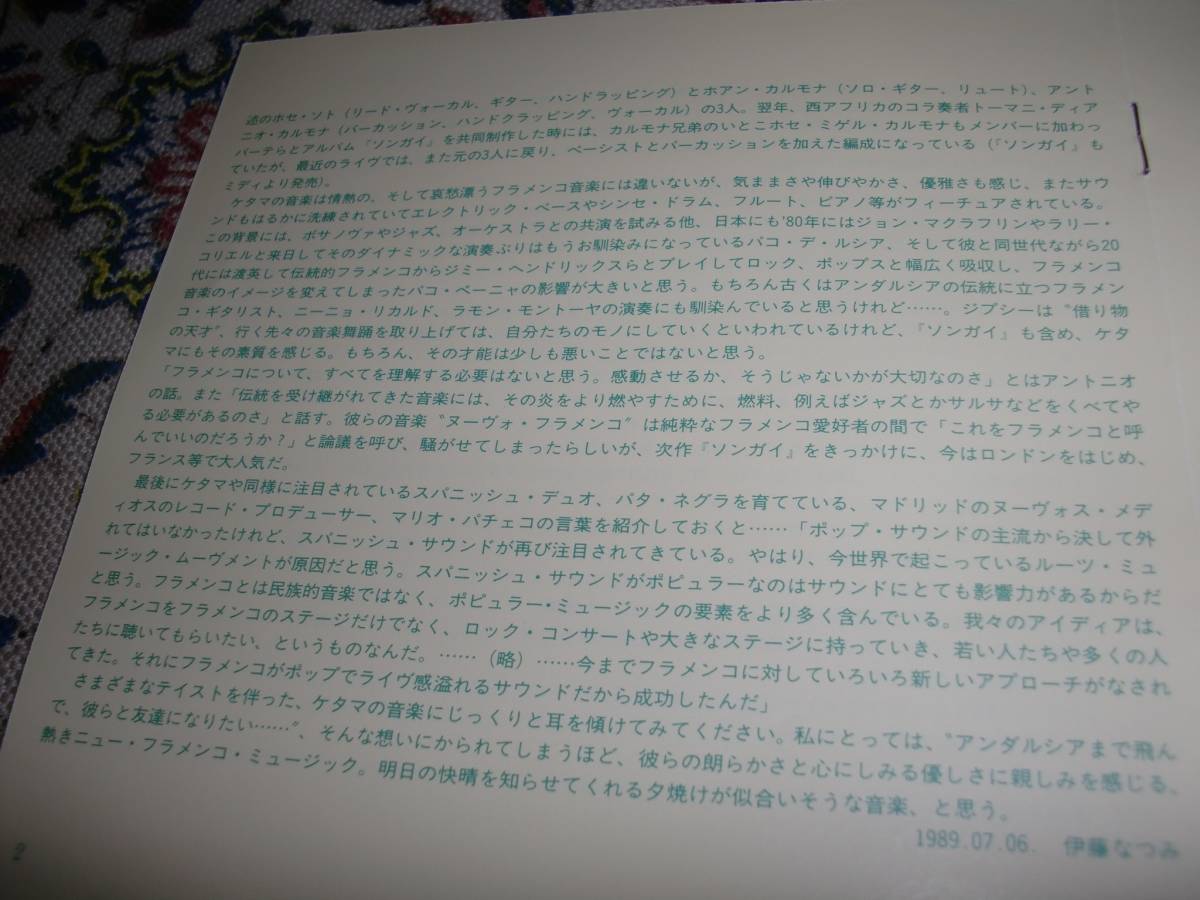 述のホセ・ソト（リード・ヴォーカル、ギター、ハンドラッピング）とホアン・カルモナ（ソロ・ギター、リュート）、アント
ニオ・カルモナ（パーカッション、ハンドクラッピング、ヴォーカル）の3人。翌年、西アフリカのコラ奏者トーマニ・ディア
バーテらとアルバム『ソンガイ』を共同制作した時には、カルモナ兄弟のいとこホセ・ミゲル・カルモナもメンバーに加わっ
ていたが、最近のライヴでは、また元の3人に戻り、ベーシストとパーカッションを加えた編成になっている（『ソンガイ』も
ミディより発売）。
ケタマの音楽は情熱の、そして哀愁漂うフラメンコ音楽には違いないが、気ままさや伸びやかさ、優雅さも感じ、またサウ
ンドもはるかに洗練されていてエレクトリック・ベースやシンセ・ドラム、フルート、ピアノ等がフィーチュアされている。
この背景には、ボサノヴァやジャズ、オーケストラとの共演を試みる他、日本にも'80年にはジョン・マクラフリンやラリー・
コリエルと来日してそのダイナミックな演奏ぶりはもうお馴染みになっているパコ・デ・ルシア、そして彼と同世代ながら20
代には渡英して伝統的フラメンコからジミー・ヘンドリックスらとプレイしてロック、ポップスと幅広く吸収し、フラメンコ
音楽のイメージを変えてしまったパコ・ペーニャの影響が大きいと思う。もちろん古くはアンダルシアの伝統に立つフラメン
コ・ギタリスト、ニーニョ・リカルド、ラモン・モントーヤの演奏にも馴染んでいると思うけれど……。ジプシーは〝借り物
の天才〟、行く先々の音楽舞踊を取り上げては、自分たちのモノにしていくといわれているけれど、『ソンガイ』も含め、ケタ
マにもその素質を感じる。もちろん、その才能は少しも悪いことではないと思う。
「フラメンコについて、すべてを理解する必要はないと思う。感動させるか、そうじゃないかが大切なのさ」とはアントニオ
の話。また「伝統を受け継がれてきた音楽には、その炎をより燃やすために、燃料、例えばジャズとかサルサなどをくべてや
る必要があるのさ」と話す。彼らの音楽〝ヌーヴォ・フラメンコ〟は純粋なフラメンコ愛好者の間で「これをフラメンコと呼
んでいいのだろうか？」と論議を呼び、騒がせてしまったらしいが、次作『ソンガイ』をきっかけに、今はロンドンをはじめ、
フランス等で大人気だ。
最後にケタマや同様に注目されているスパニッシュ・デュオ、パタ・ネグラを育てている、マドリッドのヌーヴォス・メデ
ィオスのレコード・プロデューサー、マリオ・パチェコの言葉を紹介しておくと……「ポップ・サウンドの主流から決して外
れてはいなかったけれど、スパニッシュ・サウンドが再び注目されてきている。やはり、今世界で起こっているルーツ・ミュ
ージック・ムーヴメントが原因だと思う。スパニッシュ・サウンドがポピュラーなのはサウンドにとても影響力があるからだ
と思う。フラメンコとは民族的音楽ではなく、ポピュラー・ミュージックの要素をより多く含んでいる。我々のアイディアは、
フラメンコをフラメンコのステージだけでなく、ロック・コンサートや大きなステージに持っていき、若い人たちや多くの人
たちに聴いてもらいたい、というものなんだ。……（略）……今までフラメンコに対していろいろ新しいアプローチがなされ
てきた。それにフラメンコがポップでライヴ感溢れるサウンドだから成功したんだ」
さまざまなテイストを伴った、ケタマの音楽にじっくりと耳を傾けてみてください。私にとっては、〝アンダルシアまで飛ん
で、彼らと友達になりたい……〟、そんな想いにかられてしまうほど、彼らの朗らかさと心にしみる優しさに親しみを感じる、
熱きニュー・フラメンコ・ミュージック。明日の快晴を知らせてくれる夕焼けが似合いそうな音楽、と思う。
1989.07.06. 伊藤なつみ
2